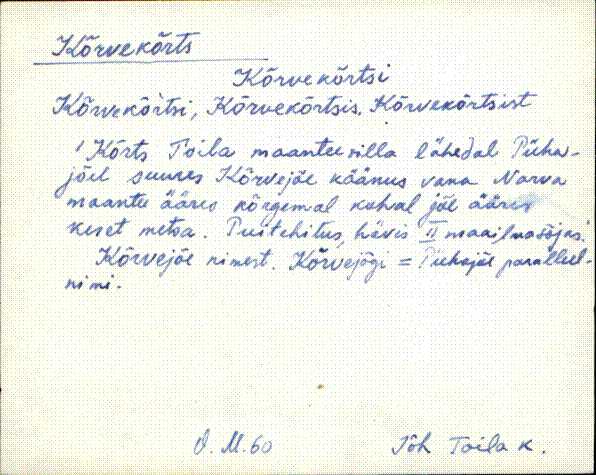 Kõrvekõrts
Kõrvekõrtsi
Kõrvekõrtsi, Kõrvekõrtsis, Kõrvekõrtsist
'Kõrts Toila maantee silla lähedal Pühajõel
jõel suures Kõrvejõe käänus vana Narva
maantee ääres kõrgemal kohal jõe ääres
keset metsa. Puitehitus, hävis II maailmasõjas.'
Kõrvejõe nimest. Kõrvejõgi = Pühajõe paralleel-
nimi.
O. M. 60 Jõh Toila k.